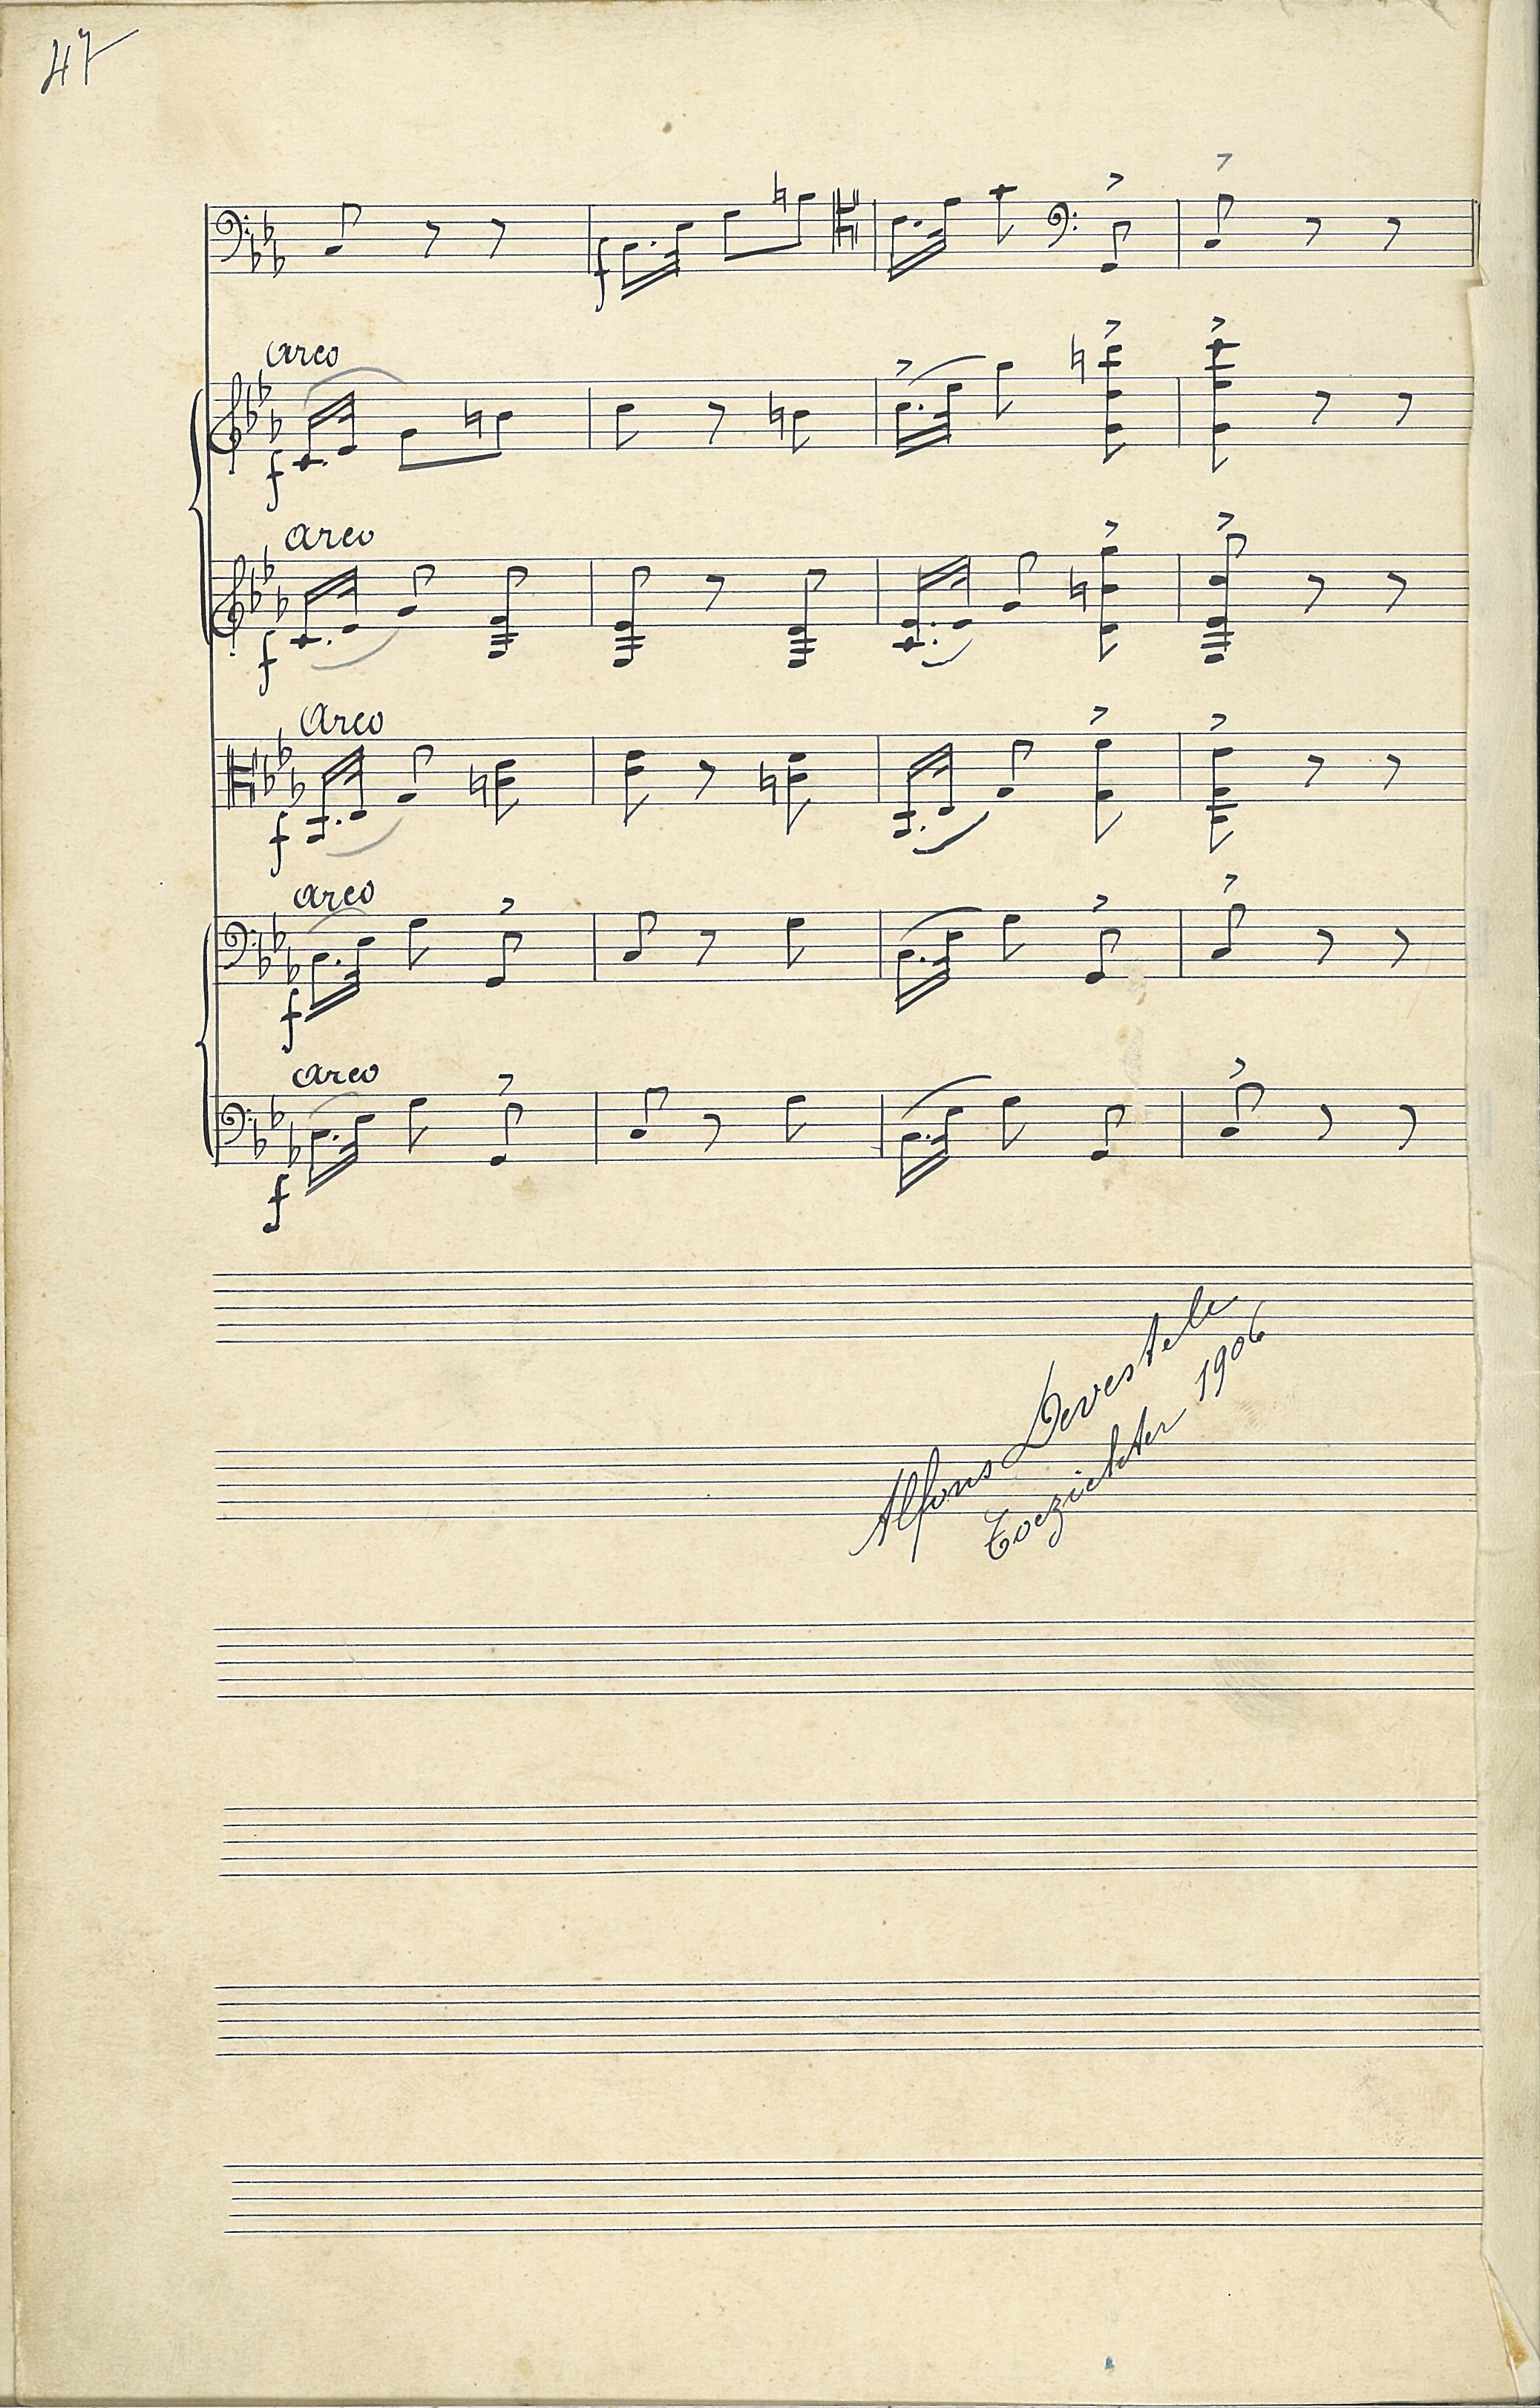 47
f
arco
f
arco
f
Arco
f
arco
f
arco
f
Alfons Devestele
Toezichter 1906